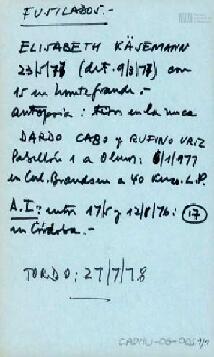 FUSILADOS.-
ELISABETH KÄSEMANN
23/5/77 (det. 9/3/77) con
15 en Monte Grande.-
Autopsia: tiros en la nuca
DARDO CABO y RUFINO URIZ
Pabellón 1 a Olmos: 6/1/977
en Cnel. Brandsen a 40 Kms. L.P.
A.I.: entre 17/5 y 12/8/76: 17
en Córdoba.-
TORDO: 27/7/78
CADHU-06-